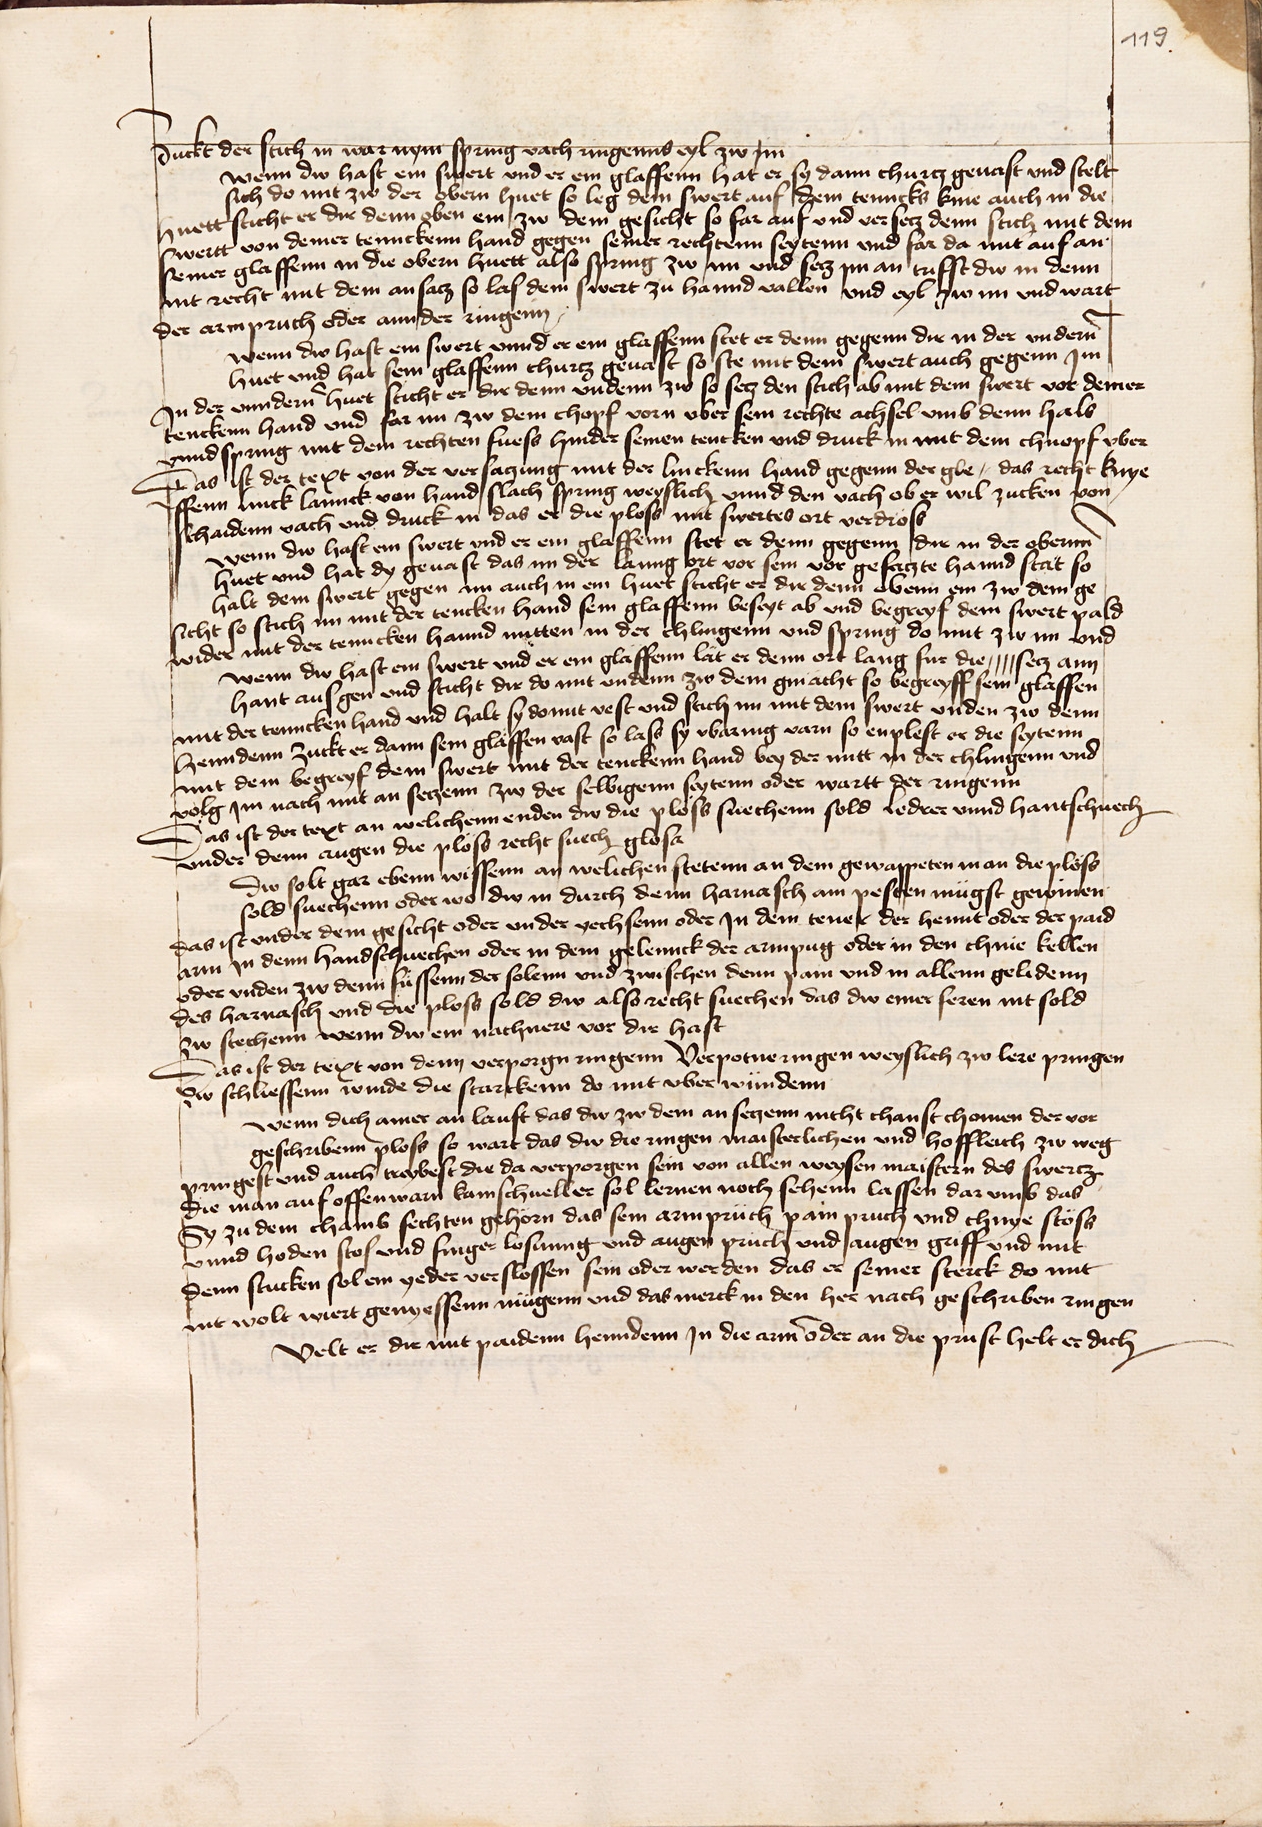 119
Zuckt der stich in war nym spring vach ringenns eyl zw im
wenn dw hast ein swert und er ein glaffenn hat er sy dann churtz gevast und stelt
sich do mit zw der obern huet so leg dein swert auf dein tenncks knie auch in die
huett sticht er dir denn oben ein zw dem gesicht so far auf und versetz denn stich mit dem
swertt von deiner tennckenn hand gegen seiner rechtenn seytenn und far da mit auf an
seiner glaffenn in die obern huett also spring zw im und setz im an trifft dw in denn
nit recht mit dem ansatz so las dein swert zu hannd vallen und eyl zw im und wart
der arm pruch oder annder ringenn
wenn dw hast ein swert vnnd er ein glaffenn stet er denn gegenn dir in der undern
huet und hat sein glaffenn churtz gevast so ste mit dem swert auch gegenn Im
In der vnndern huet sticht er dir denn undenn zw so setz den stich ab mit dem swert vor deiner
tenckenn hand und far im zw dem chopf vorn uber sein rechte achsel umb denn hals
vnnd spring mit dem rechten fuess hinder seinen tencken und druck in mit dem chnopf vber
Das ist der text von der versatzung mit der linckenn hand gegenn der gle / das recht knye
ffenn linck lannck von hand slach spring weyslich vnnd den vach ob er wil zucken von
schaidenn vach und druck in das er die ploss mit swertes ort verdross
Wenn dw hast ein swert und er ein glaffenn stet er denn gegenn dir in der obernn
huet und hat dy gevast das im der lanng ort vor sein vor gesatzte hannd stät so
halt dein swert gegen im auch in ein huet sticht er dir denn obenn ein zw dem ge
sicht so stich im mit der tencken hand sein glaffenn beseyt ab und begreyf dein swert pald
wider mit der tenncken hannd mitten in der chlingenn und spring do mit zw im und
wenn dw hast ein swert und er ein glaffenn lät er denn ort lang fur die //// setz ann
hant ausgen und sticht dir do mit undenn zw dem gmacht so begreyff sein glaffen
mit der tenncken hand und halt sy domit vest und stich im mit dem swert unden zw denn
henndenn zuckt er dann sein gläffen vast so lass sy vbaring varn so enplest er die seytenn
mit dem begreyf dein swert mit der tenckenn hand bey der mitt in der chlingenn und
volg Im nach mit an setzenn zw der selbigenn seytenn oder wartt der ringenn
Das ist der text an welichenn enden dw die ploss suechenn sold Ledrer vnnd hantschuech
under denn augen die plöss recht suech glosa
Dw solt gar ebenn wissenn an welichen stetenn an dem gewappeten man die plöss
sold suechenn oder wo dw in durch denn harnasch am pesten mügst gewinen
das ist under dem gesicht oder under uechsenn oder In dem tener der hennt oder der paid
arm In denn handschuechen oder in dem gelennck der armpug oder in den chnie kellen
oder unden zw denn füssenn der solenn und zwischen denn pain und in allenn gelidenn
des harnasch und die ploss sold dw also recht suechen das dw einer feren nit sold
zw stechenn wenn dw ein nachnere vor dir hast
Das ist der text von denn verporgn ringenn Verpotne ringen weyslich zw lere pringen
Zw schliessenn winde die starckenn do mit vber wündenn
Wenn dich ainer an lauft das dw zw dem an setzenn nicht chanst chomen der vor
geschribenn ploss so wart das dw die ringen maisterlichen und hoffleich zw weg
pringest und auch treybest die da verporgen sein von allen weysen maistern des swertz
die man auf offenwarn kainschuell er sol lernen noch sehenn lassen dar umb das
Sy zu dem champ fechten gehörn das sein armprüch pain pruch und chnye stöss
vnnd hoden stos und finger losunng und augen pruch und augen griff und mit
denn stucken sol ein yeder verslossen sein oder werden das er seiner sterck do mit
nit wolt wiert genyessenn mügenn und das merck in den her nach geschriben ringen
Velt er dir mit paidenn henndenn In die arm oder an die prust helt er dich